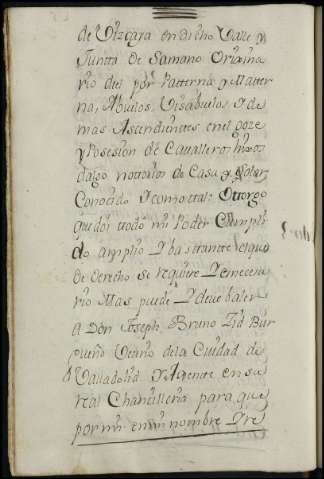 de Vizcaya en dicho Valle y
Juntta de Samano Origina
rio de el por Patterna y Matter
na, Abuelos, Visabuelos y de
mas Ascendientes en el goze
y Posesion de Cavalleros hijos
dalgo nottorios de Casa y Solar
Conocido y como tal: Ottorgo
que doi ttodo mi Poder Cumpli
do amplio y basttantte el que
de derecho se requiere y es necesa
rio Mas puede y deve baler
A Don Joseph Bruno Zid Bur
gueño Vecino de la Ciudad de
Valladolid y Agente en su
real Chancilleria para que
por mi en mi nombre y re